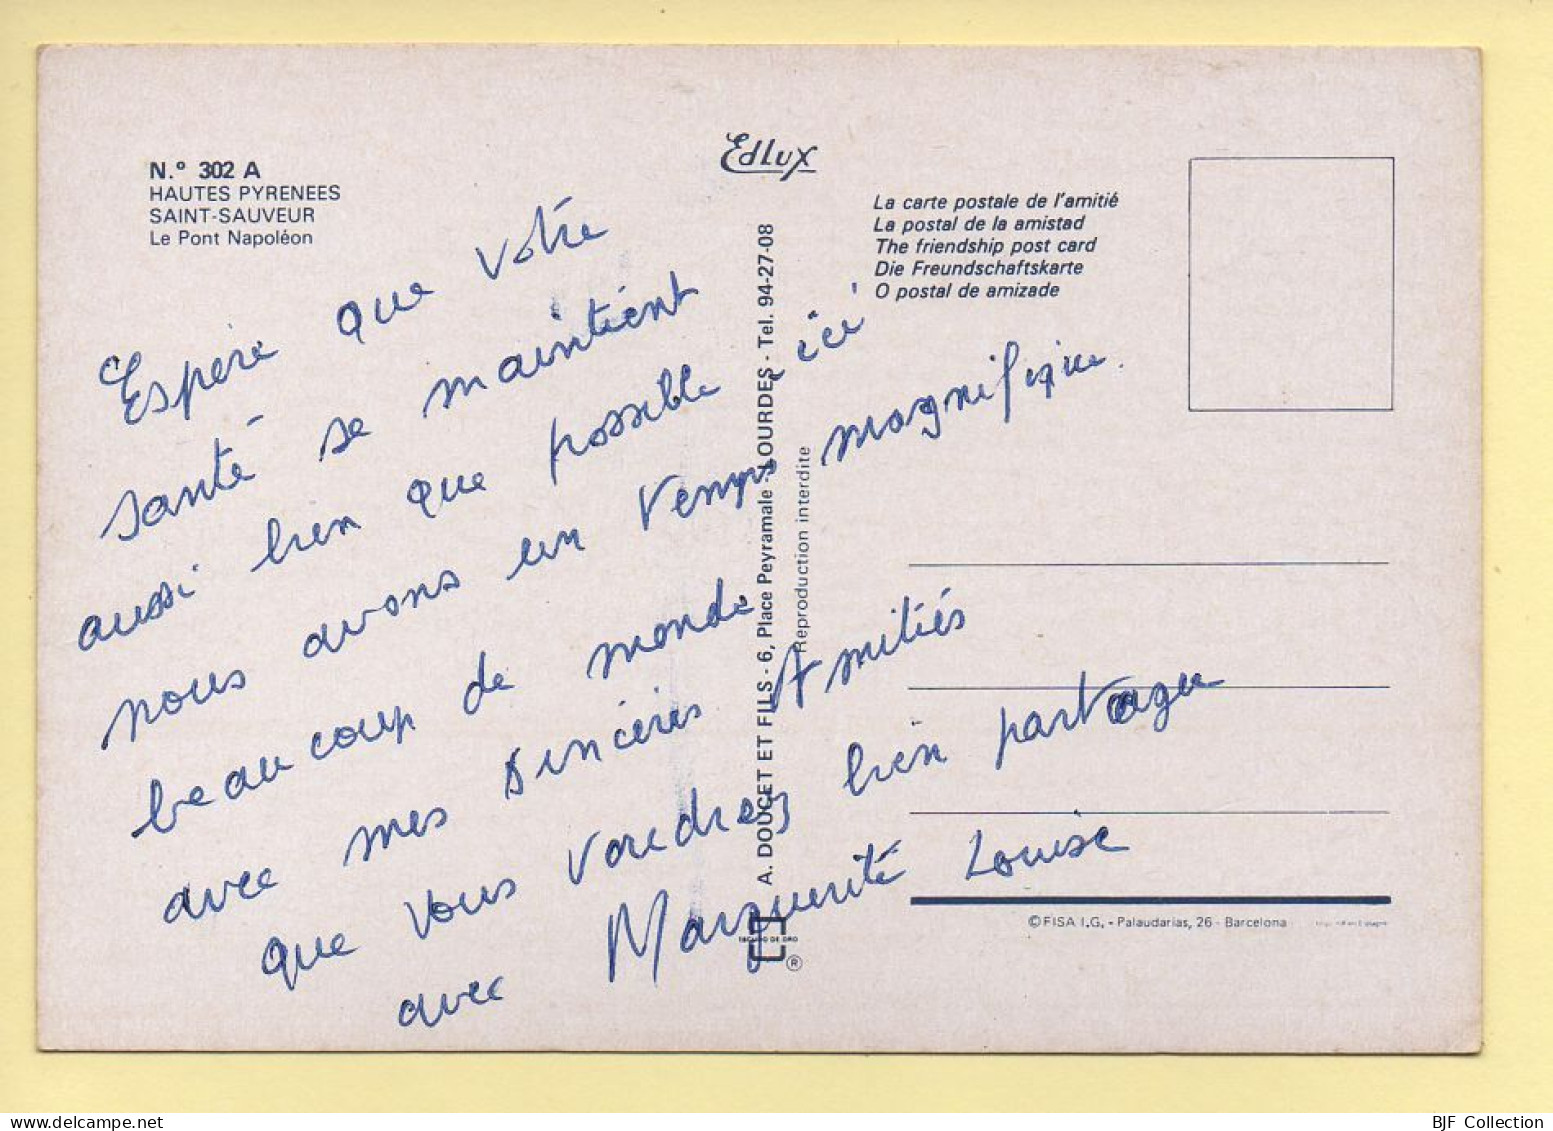 N.º 302 A
HAUTES PYRENEES
SAINT-SAUVEUR
Le Pont Napoléon
Edlux
La carte postale de l'amitié
La postal de la amistad
The friendship post card
Die Freundschaftskarte
O postal de amizade
Espère que votre
santé se maintient
aussi bien que possible, ici
nous avons un temps magnifique.
beaucoup de monde
avec mes sincères Amitiés
que vous voudrez bien partager
avec Marguerite Louise
A. DOUCET ET FILS - 6, Place Peyramale - LOURDES - Tel. 94-27-08
Reproduction interdite
ESCUDO DE ORO
®
© FISA I.G. - Palaudarias, 26 - Barcelona
BJF Collection